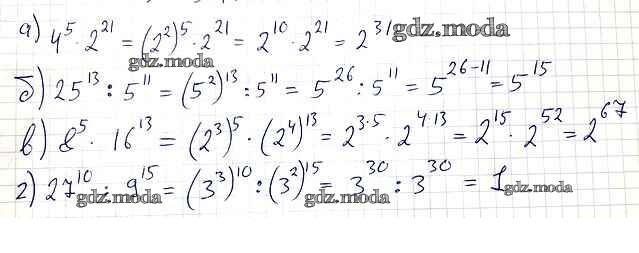 а) 4⁵ · 2²¹ = (2²)⁵ · 2²¹ = 2¹⁰ · 2²¹ = 2³¹ gdz.moda
gdz.moda
б) 25¹³ : 5¹¹ = (5²)¹³ : 5¹¹ = 5²⁶ : 5¹¹ = 5²⁶⁻¹¹ = 5¹⁵
в) 8⁵ · 16¹³ = (2³)⁵ · (2⁴)¹³ = 2³·⁵ · 2⁴·¹³ = 2¹⁵ · 2⁵² = 2⁶⁷
г) 27¹⁰ : 9¹⁵ = (3³)¹⁰ : (3²)¹⁵ = 3³⁰ : 3³⁰ = 1
gdz.moda gdz.moda gdz.moda